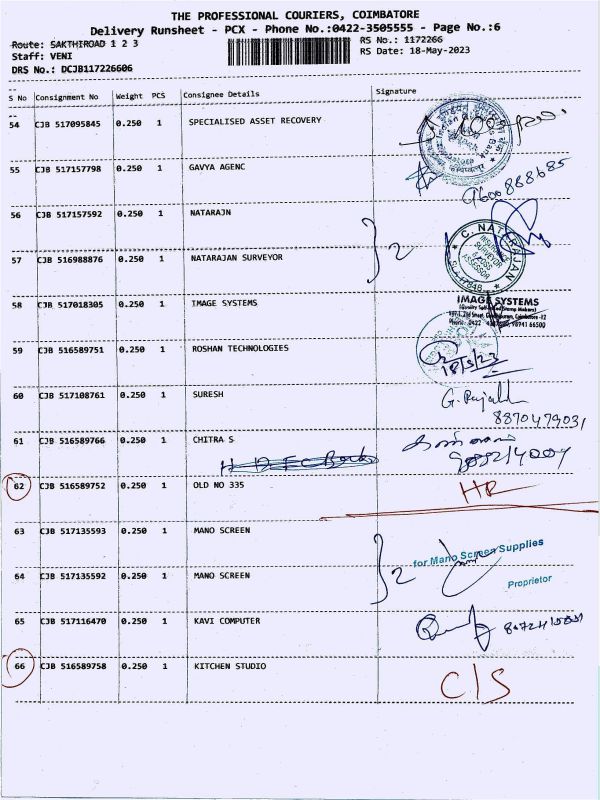 THE PROFESSIONAL COURIERS, COIMBATORE
Delivery Runsheet - PCX - Phone No.:0422-3505555 - Page No.:6
Route: SAKTHIROAD 1 2 3
RS No.: 1172266
Staff: VENI
RS Date: 18-May-2023
DRS No.: DCJB117226606
S No Consignment No Weight PCS Consignee Details Signature
54 CJB 517095845 0.250 1 SPECIALISED ASSET RECOVERY
55 CJB 517157798 0.250 1 GAVYA AGENC
9600888685
56 CJB 517157592 0.250 1 NATARAJN
2
57 CJB 516988876 0.250 1 NATARAJAN SURVEYOR
C. NATARAJAN
INSURANCE SURVEYOR LOSS ASSESSOR
58 CJB 517018305 0.250 1 IMAGE SYSTEMS
IMAGE SYSTEMS
59 CJB 516589751 0.250 1 ROSHAN TECHNOLOGIES
18/5/23
60 CJB 517108761 0.250 1 SURESH
8870479031
61 CJB 516589766 0.250 1 CHITRA S
62 CJB 516589752 0.250 1 OLD NO 335
63 CJB 517135593 0.250 1 MANO SCREEN
2 for Mano Screen Supplies
64 CJB 517135592 0.250 1 MANO SCREEN
Proprietor
65 CJB 517116470 0.250 1 KAVI COMPUTER
66 CJB 516589758 0.250 1 KITCHEN STUDIO
C/S